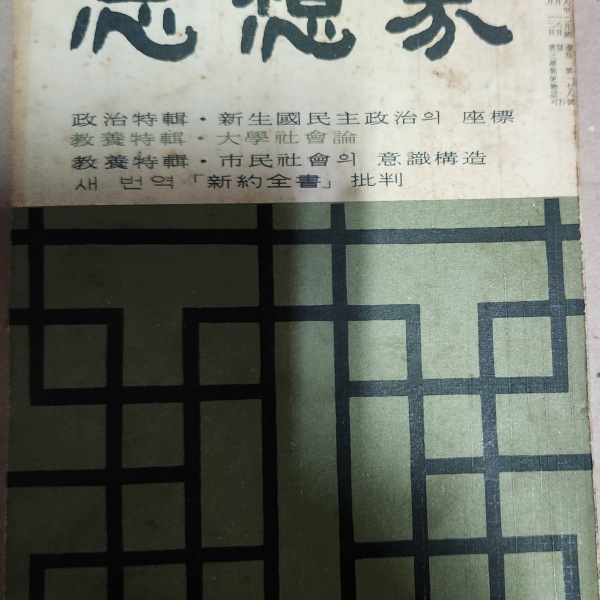 思想界
政治特輯・新生國民主政治의 座標
敎養特輯・大學社會論
敎養特輯・市民社會의 意識構造
새 번역「新約全書」批判
第三種郵便物認可